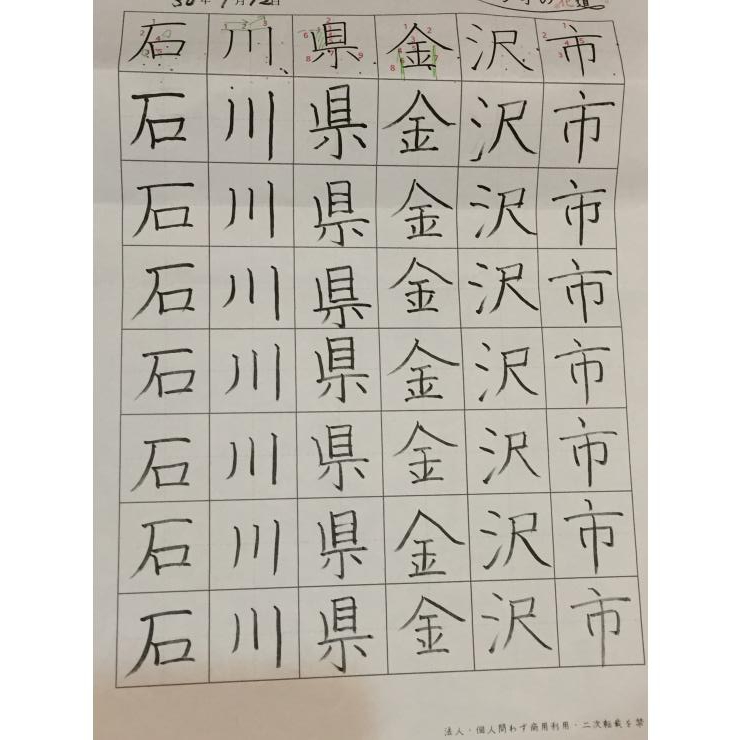 30年9月12日
石川県金沢市
石川県金沢市
石川県金沢市
石川県金沢市
石川県金沢市
石川県金沢市
石川県金沢市
石川県金沢市
法人・個人問わず商用利用・二次転載を禁